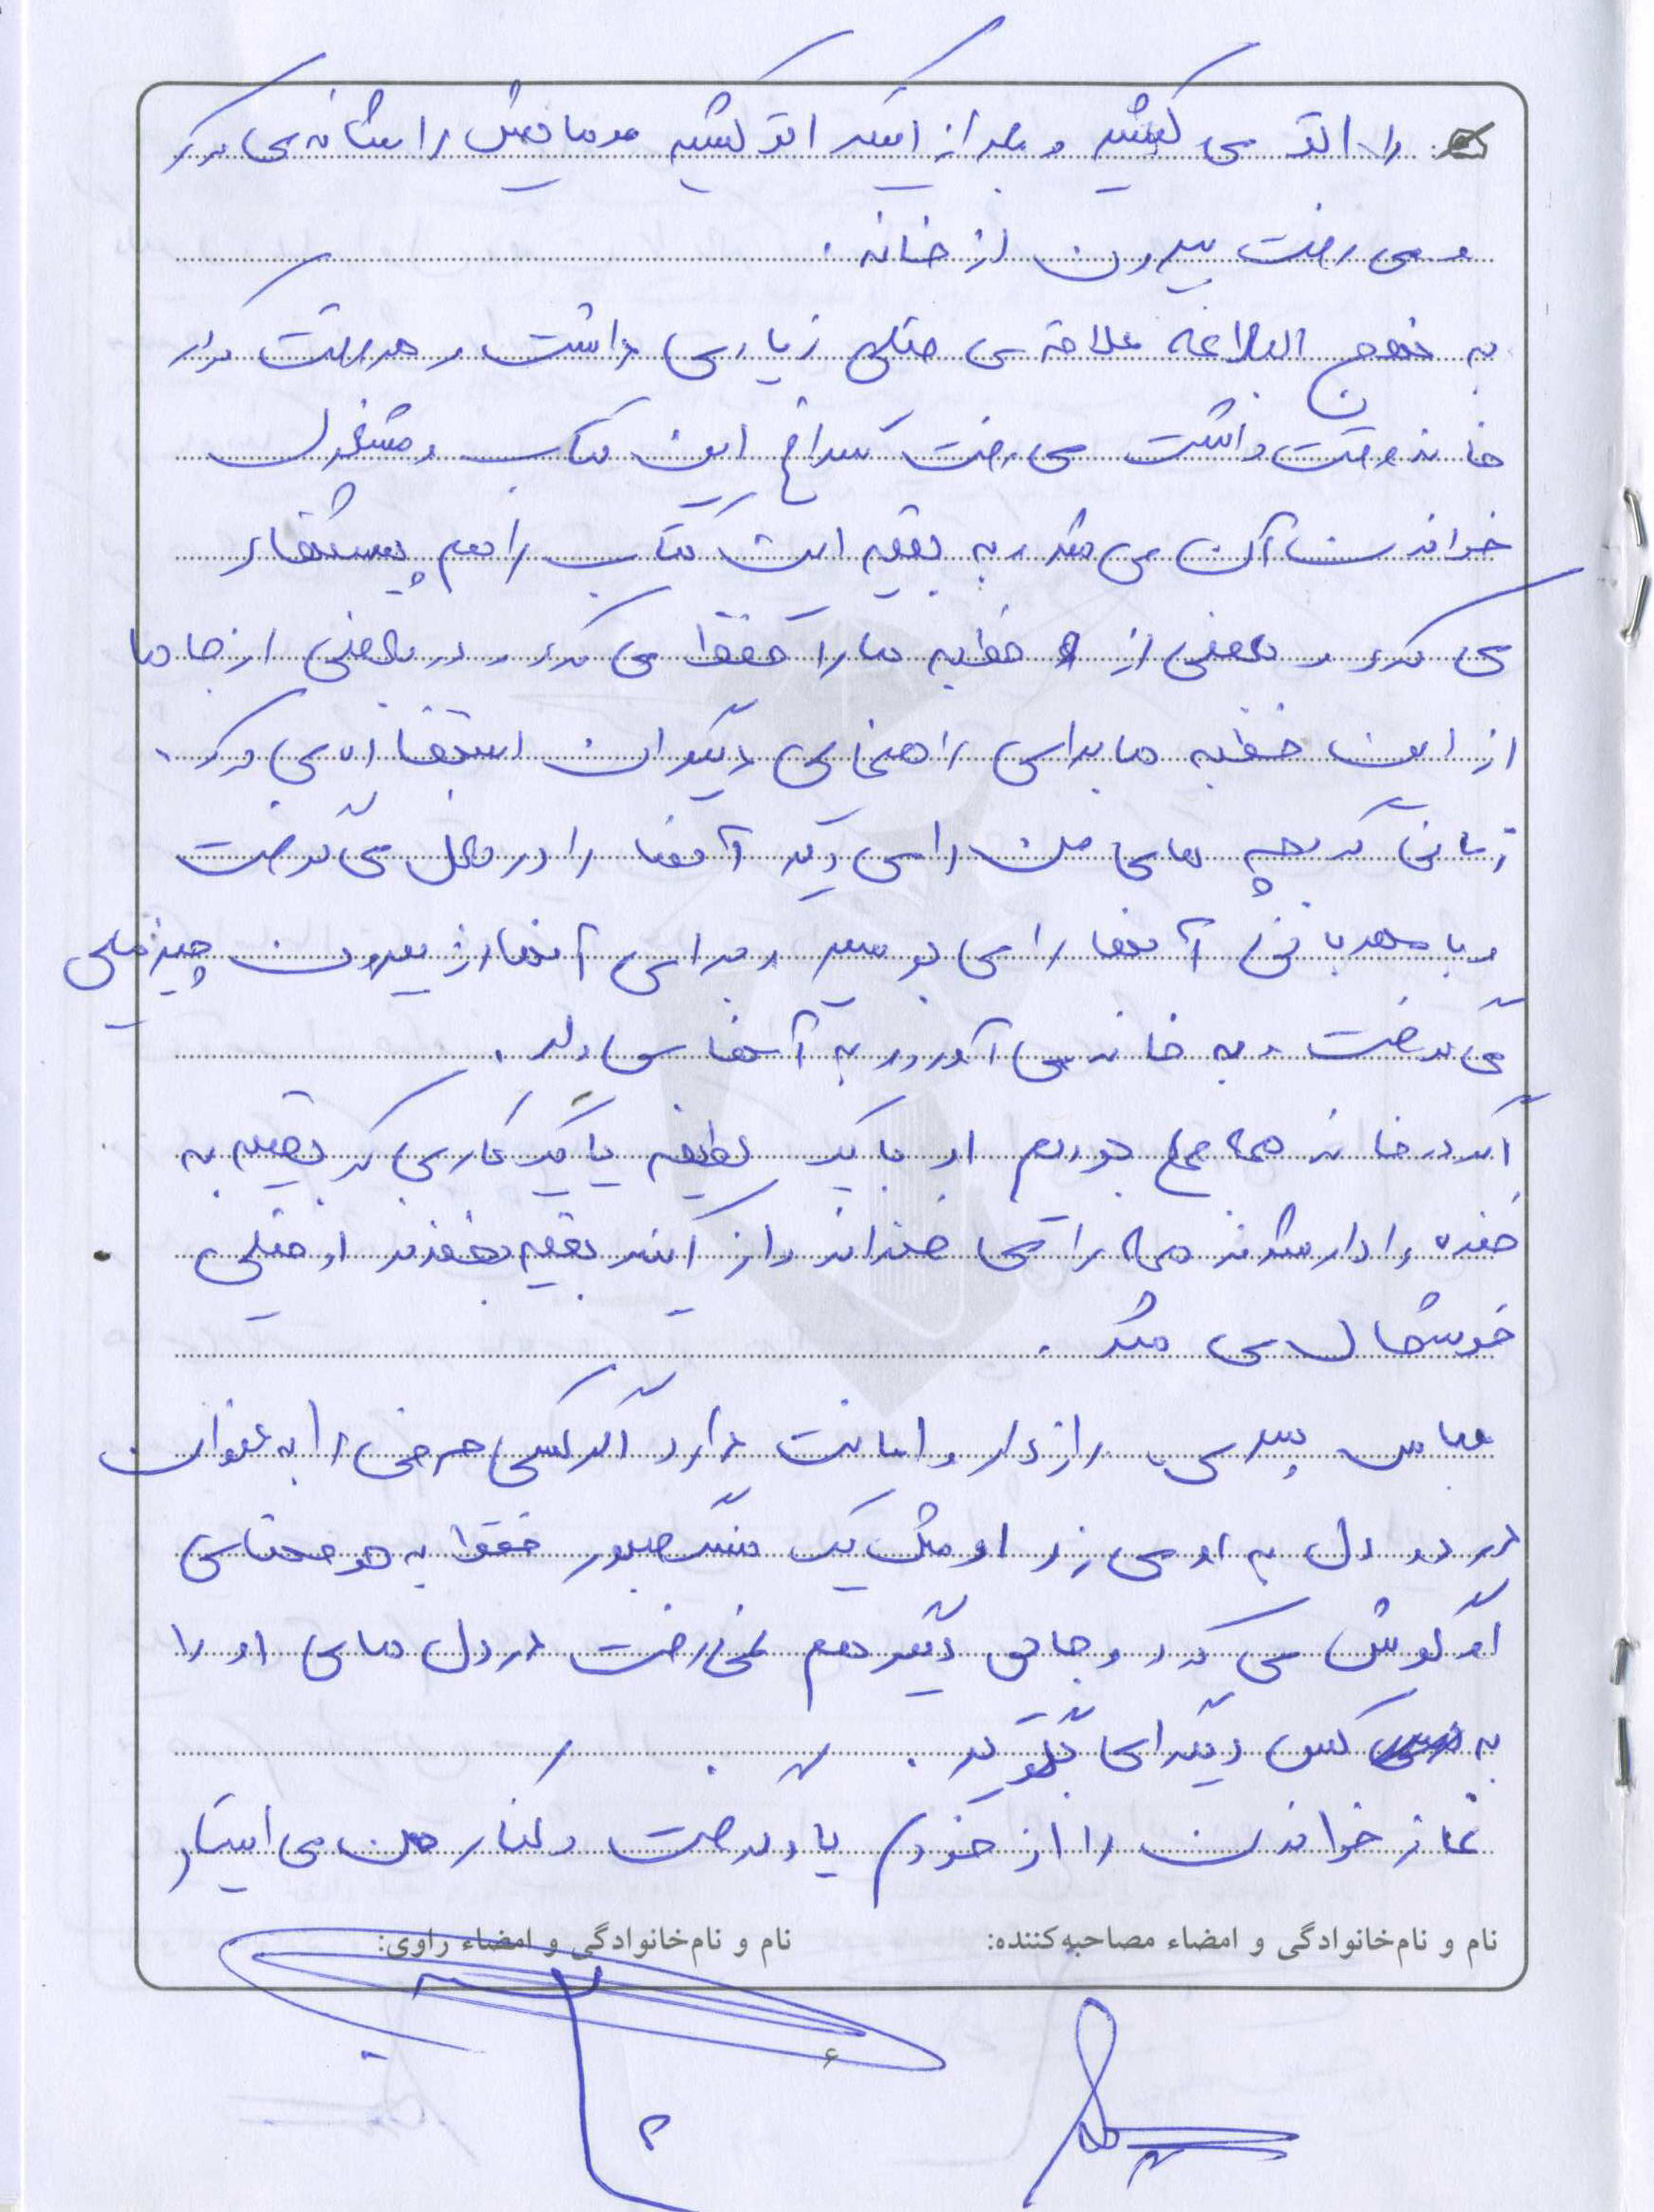 را اتو می کشید و بعد از اینکه اتو کشید موهایش را شانه می کرد
و می رفت بیرون از خانه.
به نهج البلاغه علاقه ی خیلی زیادی داشت و هر وقت در
خانه وقت داشت می رفت سراغ این کتاب و مشغول
خواندن آن می شد و به بقیه این کتاب را هم پیشنهاد
می کرد و بعضی از خطبه ها را حفظ می کرد و در بعضی از جاها
از این خطبه ها برای راهنمایی دیگران استفاده می کرد.
زمانی که بچه های من را می دید آنها را در بغل می گرفت
و با مهربانی آنها را می بوسید و برای آنها از بیرون چیز خیلی
می گرفت و به خانه می آورد و به آنها می داد.
اگر در خانه همه جمع بودیم او با یک لطیفه یا یک کاری که بقیه به
خنده وادار شوند همه را می خنداند و از اینکه بقیه بخندند او خیلی
خوشحال می شد.
عباس پسری رازدار و امانت دارد اگر کسی حرفی را به عنوان
درد و دل به او می زد او مثل یک سنگ صبور فقط به حرفهای
او گوش می کرد و جای دیگر هم نمی رفت درد دل های او را
به کس دیگر ای بگوید.
نماز خواندن را از خودم یاد گرفت و کنار من می ایستاد
نام و نام‌خانوادگی و امضاء مصاحبه‌کننده:
نام و نام‌خانوادگی و امضاء راوی:
۶